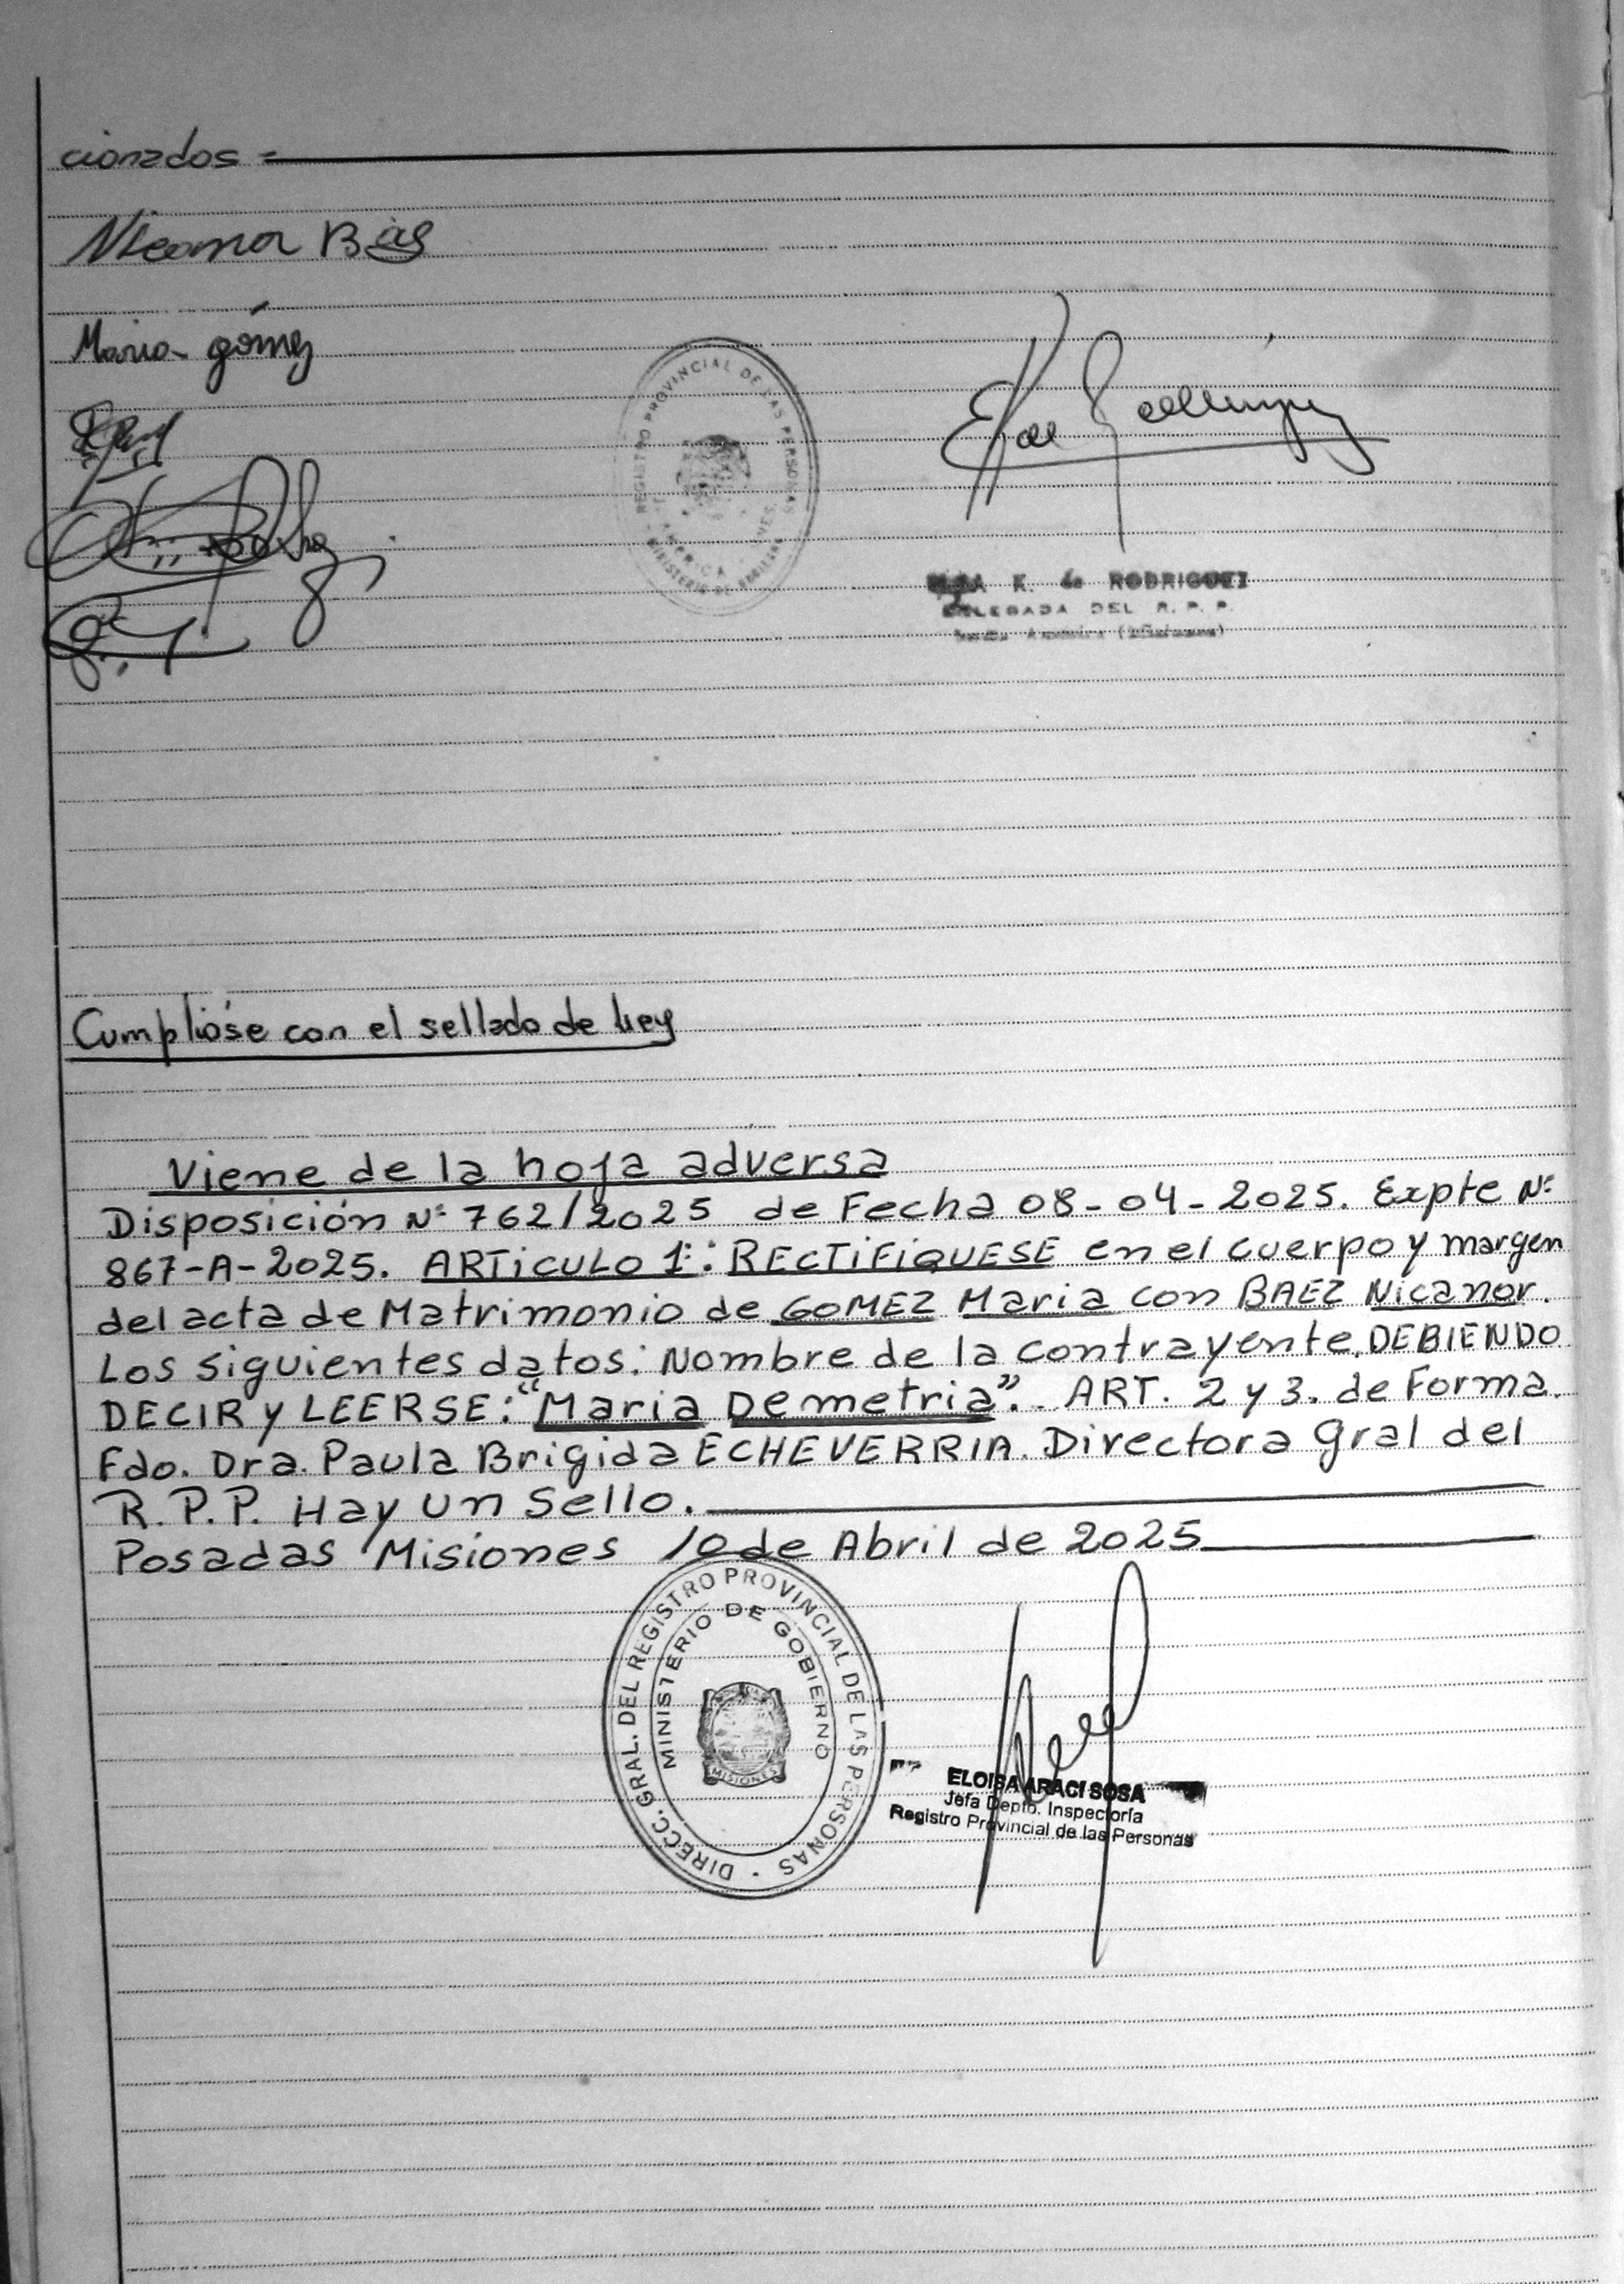 cionados =
Nicanor Bàes
Maria gómez
REGISTRO PROVINCIAL DE LAS PERSONAS
AMERICA
MINISTERIO DE
K. de RODRIGUEZ
DELEGADA DEL R. P. P.
Cumplióse con el sellado de ley
Viene de la hoja adversa
Disposición Nº 762/2025 de Fecha 08-04-2025. Expte Nº
867-A-2025. ARTICULO 1º: RECTIFIQUESE en el cuerpo y margen
del acta de Matrimonio de GOMEZ Maria con BAEZ Nicanor.
Los siguientes datos: Nombre de la contrayente, DEBIENDO
DECIR y LEERSE: "Maria Demetria". ART. 2 y 3. de Forma.
Fdo. Dra. Paula Brigida ECHEVERRIA. Directora Gral del
R.P.P. Hay un Sello.
Posadas Misiones 10 de Abril de 2025
DIRECC. GRAL. DEL REGISTRO PROVINCIAL DE LAS PERSONAS
MINISTERIO DE GOBIERNO
MISIONES
ELOISA ARACI SOSA
Jefa Depto. Inspectoría
Registro Provincial de las Personas